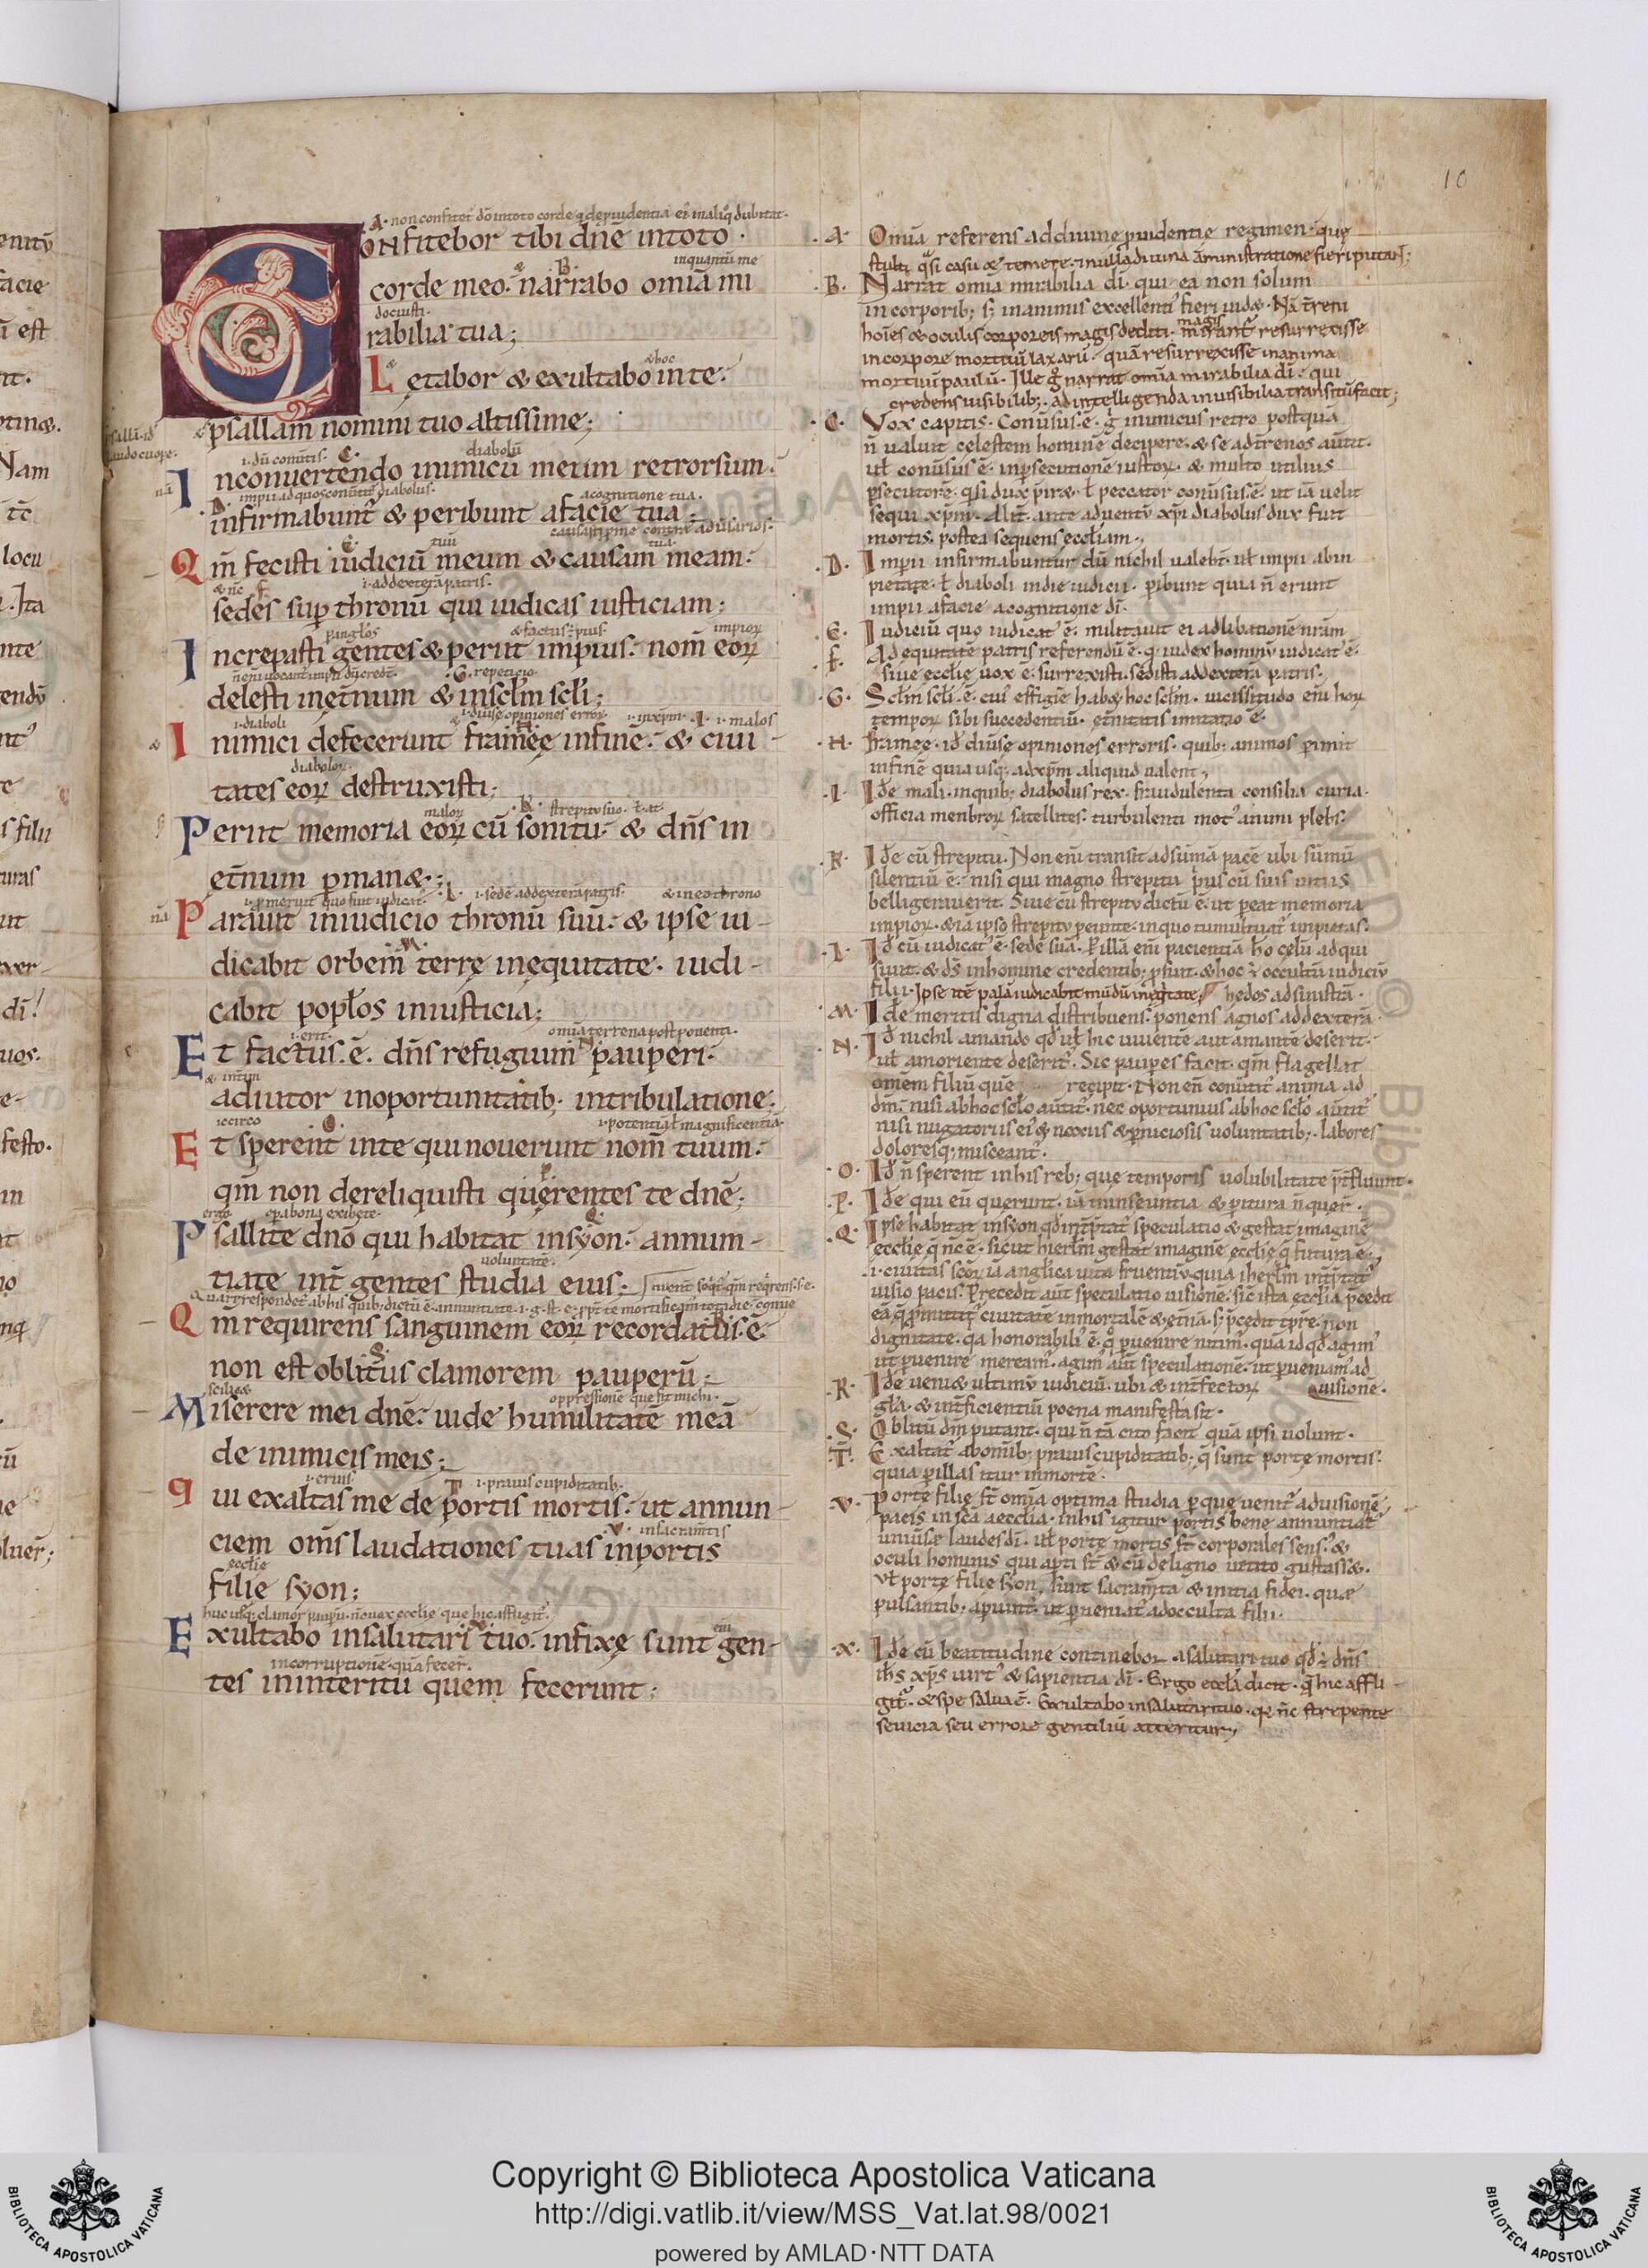 10
A· non confitet᷑ dō in toto corde q̇ de puidentia ei᷑ in aliq̊ dubitat·
Confitebor tibi dn̄e in toto·
in quantū me
corde meo· narrabo omīa mi
docuisti·
rabilia tua;
& hoc
Lętabor & exultabo in te:
psallam nomini tuo altissime;
i· dū comitis· C· diabolū
In convertendo inimicū meum retrorsum:
D· impii ad quos conūtit᷑ diabolus· a cognitione tua·
infirmabunt᷑ & peribunt a facie tua;
E· tuū tua·
Qm̄ fecisti iudiciū meum & causam meam:
& nc̄ F i· ad dexterā patris·
sedes sup thronū qui iudicas iusticiam;
& factus ÷ pius· impioꝝ
Increpasti gentes & periit impius: nom̄ eoꝝ
G· repeticio·
delesti in et̄num & in sclm̄ scli;
i· diaboli i· diuise opiniones erroꝝ i· in xpm̄· I· i· malos
Inimici defecerunt framęę in finē: & ciui-
diabolou·
tates eoꝝ destruxisti;
maloꝝ ·K· strepitu suo· ł at
Periit memoria eoꝝ cū sonitu: & dn̄s in
et̄num pmanæ;
L· i· sede ad dexterā patris· & in eo throno
Parauit in iudicio thronū suū: & ipse iu-
M·
dicabit orbem terrę in ęquitate· iudi-
cabit poplos in iusticia;
i· erit· omīa terrena postponenti·
Et factus· ē· dn̄s refugium pauperi·
& intim
adiutor in oportunitatib; in tribulatione;
iccirco O· i· potentiā ł magnificentiā·
Et sperent in te qui nouerunt nom̄ tuum:
P·
qm̄ non dereliquisti quęrentes te dnē;
ergo opa bona exibete· Q·
Psallite dnō qui habitat in syon: annun-
voluntate·
tiate int̄ gentes studia eius;
Qm̄ requirens sanguinem eoꝝ recordatus· ē:
S·
non est oblitus clamorem pauperū;
scilicæ oppressionē que fit michi·
Miserere mei dnē: uide humilitatē meā
de inimicis meis;
i· eruis T i· prauis cupiditatib·
qui exaltas me de portis mortis: ut annun-
V· in sacram̄tis
ciem oms̄ laudationes tuas in portis
ecclie
filie syon;
huc usq; clamor paupū· n̄c uox ecclie que hic affligit᷑·
Exultabo in salutari tuo· infixę sunt gen-
in corruptione quā fecer̄·
tes in interitu quem fecerunt;
·A· Omīa referens ad diuine puidentie regimen· quę
stulti q̊si casu & temere· & nulla diuina aministratione fieri putant;
·B· Narrat omīa mirabilia dī· qui ea non solum
in corporib; s; in animis excellenti᷑ fieri uidæ· Nā t̄reni
hoīes & oculis corporeis magis dediti· magis mirant᷑ resurrexisse
in corpore mortuū lazarū· quā resurrexisse in anima
mortuū paulū· Ille g̊ narrat omīa mirabilia dī· qui
credens uisibilib; ad intelligenda inuisibilia transitū facit;
·C· Vox capitis· Conūsus· ē· ḡ inimicus retro postquā
n̄ ualuit celestem hominē decipere· & se ad t̄renos aūtit·
uł conūsus ē· in psecutionē iustoꝝ· & multo utilius
psecutorē· q̊si dux p̄iræ· ł peccator conūsus· ē· ut iā uelit
sequi xpm̄· Alit̄· ante aduentū xpi diabolus dux fuit
mortis· postea sequens eccliam·
·D· Impii infirmabuntur dū nichil ualebt̄· uł impii ab in
pietate· ł diaboli in die iudicii· pibunt quia n̄ erunt
impii a facie a cognitione dī·
·E· Iudiciū quo iudicat᷑ ē· militauit ei ad libationē nrām
·F· Ad equitatē patris referendū ē· q̇ iudex hominū iudicat᷑ ē·
siue ecclie uox ē· surrexisti· sedisti ad dexterā patris·
·G· Sclm̄ scli· ē· cui᷑ effigiē habæ hoc sclm̄· uicissitudo eni᷑ hoꝝ
tempoꝝ sibi succedentiū· et̄nitatis imitatio ē·
·H· Framęę· id diuise opiniones erroris· quib; animos pimit
in finē quia usq; ad xpm̄ aliquid ualent·
·I· Ide mali· in quib; diabolus rex· fraudulenta consilia curia·
officia menbroꝝ satellites· turbulenti mot᷑ animi plebs·
·K· Ide cū strepitu· Non eni᷑ transit ad sūmā pacē ubi sūmū
silentiū ē· nisi qui magno strepitu prius cū suis uitiis
belligerauerit· Siue cū strepitu dictū ē· ut peat memoria
impioꝝ· & iā ipso strepitu pereunte· in quo tumultuat᷑ impietas·
·L· Id cū iudicat᷑ ē· sedē suā· P illā eni᷑ pacientiā ho celū adqui
siuit· & ds̄ in homine credentib; p fuit· & hoc ÷ occultū iudiciū
filii· Ipse itē palā iudicabit mūdū in eq̊tate· hedos ad sinistrā·
·M· Ide meritis digna distribuens· ponens agnos ad dexterā·
·N· Id nichil amando qd uł hic uiuente aut amantē deserit·
uł a moriente deserit᷑· Sic paupes facit· qm̄ flagellat
omem filiū que recipit· Non en̄ conūtit᷑ anima ad
dm̄· nisi ab hoc sclo aūtit᷑· nec oportunius ab hoc sclo aūtit᷑
nisi nugatoriis ei᷑ & noxiis & pniciosis uoluntatib;· labores
doloresq; misceant᷑·
·O· Id n̄ sperent in his reb; que temporis uolubilitate p̄t̄fluunt·
·P· Ide qui eū querunt· iā transeuntia & pitura n̄ quer̄·
·Q· Ipse habitat in syon qd int̄ptat᷑ speculatio & gestat imaginē
ecclie q̄ nc̄ ē· sicut hierlm̄ gestat imaginē ecclie q̄ futura ē·
·i· ciuitas scoꝝ iā anglica uita fruentiū· quia iherlm̄ int̄ptat᷑
uisio pacis· Precedit aut̄ speculatio uisionē· sic ista ecclia p̄cedit
eā q̄ pmittit᷑ ciuitatē inmortalē & et̄nā· s; p̄cedit tpre· non
dignitate· qa honorabili᷑ ē· q̊ puenire nitim᷑· quā id qd agim᷑
ut puenire meream᷑· agim᷑ aut̄ speculationē· ut pueniam᷑ ad
·R· Ide ueniæ ultimū iudiciū· ubi & int̄fectoꝝ uisionē·
gla· & int̄ficientiū poena manifesta sit·
·S· Oblitū dm̄ putant· qui n̄ tā cito facit quā ipsi uolunt·
·T· Exaltat᷑ ab omīb; prauis cupiditatib; q̄ sunt portę mortis·
quia p illas itur in mortē·
·V· Portę filię st̄ omīa optima studia p que uenit᷑ ad uisionē
pacis in scā aecclia· in his igitur portis bene annuntiat᷑
uniūsæ laudes dī· uł portę mortis st̄ corporales sens᷑· &
oculi hominis qui apti st̄ & cū de ligno uetito gustassæ·
uł portę filie syon· sunt sacram̄ta & initia fidei· quæ
pulsantib; apiunt᷑· ut pueniat᷑ ad occulta filii·
·X· Ide cū beatitudine continebor· a salutari tuo qd ÷ dn̄s
ihs̄ xps̄ uirt᷑ & sapientia dī· Ergo eccla dicit· q̄ hic affli-
git᷑· & spe salua ē· Exultabo in salutari tuo· q̄ nc̄ strepente
seuicia seu errore gentiliū atteritur·
Copyright © Biblioteca Apostolica Vaticana
http://digi.vatlib.it/view/MSS_Vat.lat.98/0021
powered by AMLAD·NTT DATA
BIBLIOTECA APOSTOLICA VATICANA
BIBLIOTECA APOSTOLICA VATICANA